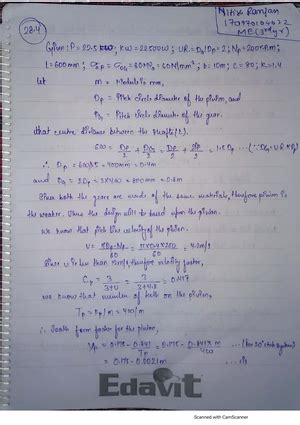 Nitish Ranjan
ME (3rd yr)
28.4
Given: P = 22.5 kW = 22500 W; V.R = DG/DP = 2; NP = 200 r.p.m;
L = 600 mm; σOP = σOG = 60 MPa = 60 N/mm²; b = 10m; C = 80; K = 1.4
Let m = Module in mm,
DP = Pitch circle diameter of the pinion, and
DG = Pitch circle diameter of the gear.
that centre distance between the shafts (L).
600 = DP/2 + DG/2 = DP/2 + 2DP/2 = 1.5 DP ... (∵ DG = V.R × DP)
∴ DP = 600/1.5 = 400mm = 0.4m
and DG = 2DP = 2×400 = 800mm = 0.8m
Since both the gears are made of the same material, therefore pinion is
the weaker. Thus the design will be based upon the pinion.
We know that pitch line velocity of the pinion.
V = πDP.NP/60 = π×0.4×200/60 = 4.2m/s
Since V is less than 12m/s, therefore velocity factor,
CV = 3/3+V = 3/3+4.2 = 0.417
we know that number of teeth on the pinion,
TP = DP/m = 400/m
∴ Tooth form factor for the pinion,
yP = 0.175 - 0.841/TP = 0.175 - 0.841×m/400 ... (for 20° stub system)
= 0.175 - 0.0021m ... (i)
Edavit
Scanned with CamScanner